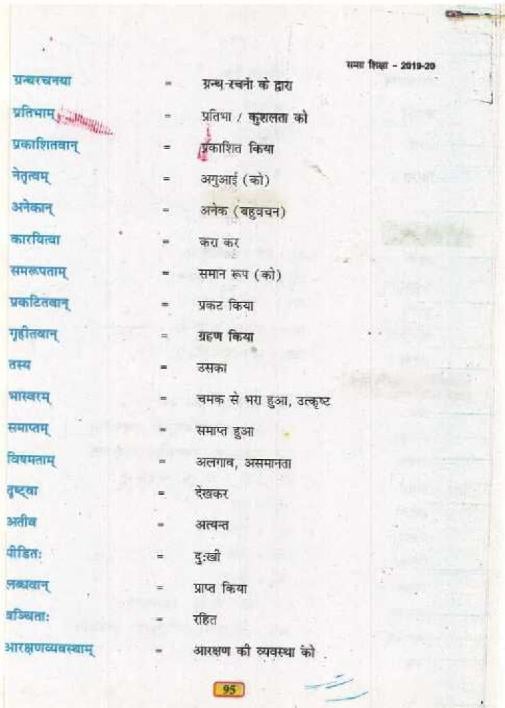 समग्र शिक्षा - 2019-20
ग्रन्थरचनया = ग्रन्थ-रचना के द्वारा
प्रतिभाम् = प्रतिभा / कुशलता को
प्रकाशितवान् = प्रकाशित किया
नेतृत्वम् = अगुआई (को)
अनेकान् = अनेक (बहुवचन)
कारयित्वा = करा कर
समरूपताम् = समान रूप (को)
प्रकटितवान् = प्रकट किया
गृहीतवान् = ग्रहण किया
तस्य = उसका
भास्वरम् = चमक से भरा हुआ, उत्कृष्ट
समाप्तम् = समाप्त हुआ
विषमताम् = अलगाव, असमानता
दृष्ट्वा = देखकर
अतीव = अत्यन्त
पीडितः = दुःखी
लब्धवान् = प्राप्त किया
वञ्चिताः = रहित
आरक्षणव्यवस्थाम् = आरक्षण की व्यवस्था को
95